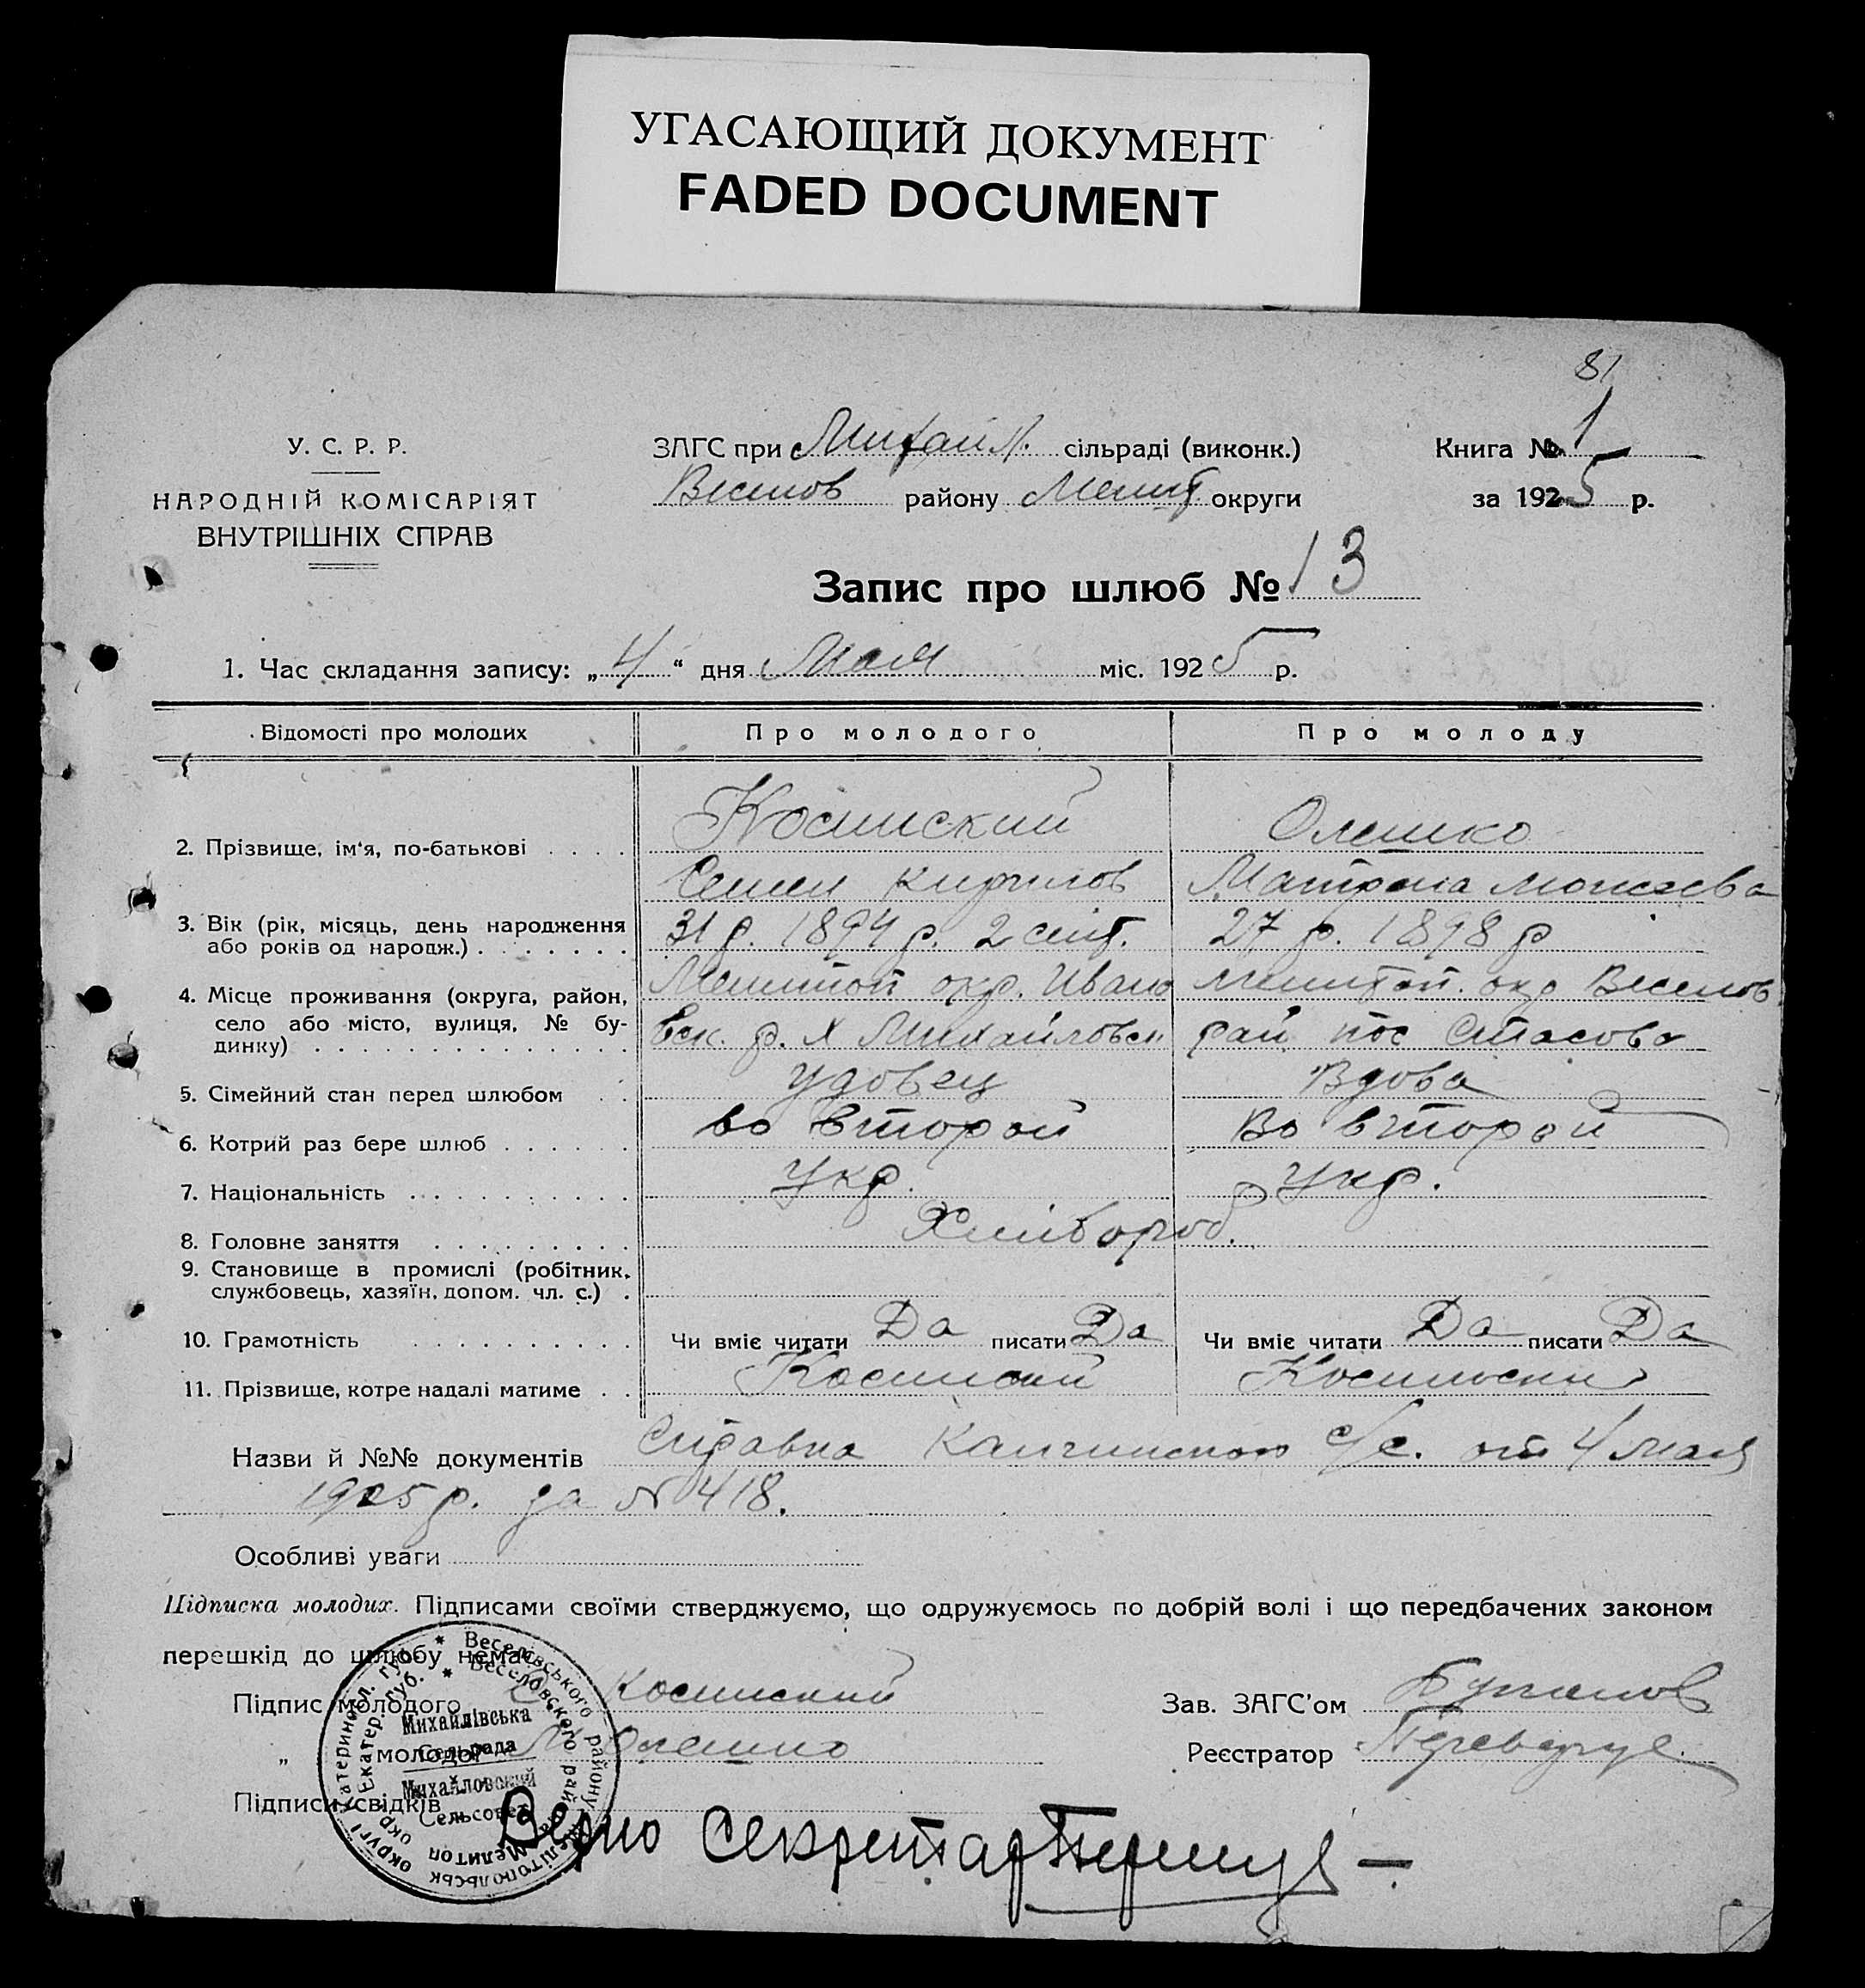 УГАСАЮЩИЙ ДОКУМЕНТ
FADED DOCUMENT
81
У. С. Р. Р.
НАРОДНІЙ КОМІСАРІЯТ
ВНУТРІШНІХ СПРАВ
ЗАГС при Михайл. сільраді (виконк.)
Веселов району Мелит округи
Книга № 1
за 1925 р.
Запис про шлюб № 13
1. Час складання запису: „4“ дня Мая міс. 1925 р.
Відомості про молодих
Про молодого
Про молоду
2. Прізвище, ім'я, по-батькові . . . .
Семен Кирилов
Олешко
Матрона
3. Вік (рік, місяць, день народження
або років од народж.) . . . . . . .
31 р. 1894 р. 2 сент.
27 р. 1898 р
4. Місце проживання (округа, район,
село або місто, вулиця, № бу-
динку) . . . . . . . . . . . . . .
Мелитоп окр. Ивано
вск. р. х Михайловск
Мелитоп. окр Веселов
рай пос Стасова
5. Сімейний стан перед шлюбом . .
удовец
Вдова
6. Котрий раз бере шлюб . . . . . .
во второй
Во второй
7. Національність . . . . . . . . . .
Укр.
Укр.
8. Головне заняття . . . . . . . . .
Хлібороб.
9. Становище в промислі (робітник,
службовець, хазяїн, допом. чл. с.) .
10. Грамотність . . . . . . . . . .
Чи вміє читати Да писати Да
Чи вміє читати Да писати Да
11. Прізвище, котре надалі матиме . .
Назви й №№ документів Справка с/с. от 4 мая
1925 р. за № 418.
Особливі уваги
Підписка молодих. Підписами своїми стверджуємо, що одружуємось по добрій волі і що передбачених законом
перешкід до шлюбу немає.
Підпис молодого
„ молодої М Олешко
Підписи свідків
Зав. ЗАГС'ом
Реєстратор
Веселівського району Мелітопольськ округі Катериносл. губ.
Веселовского района Мелитоп окр. Екатер. губ.
Михайлівська
Сельрада
Михайловский
Сельсовет
Верно Секретар